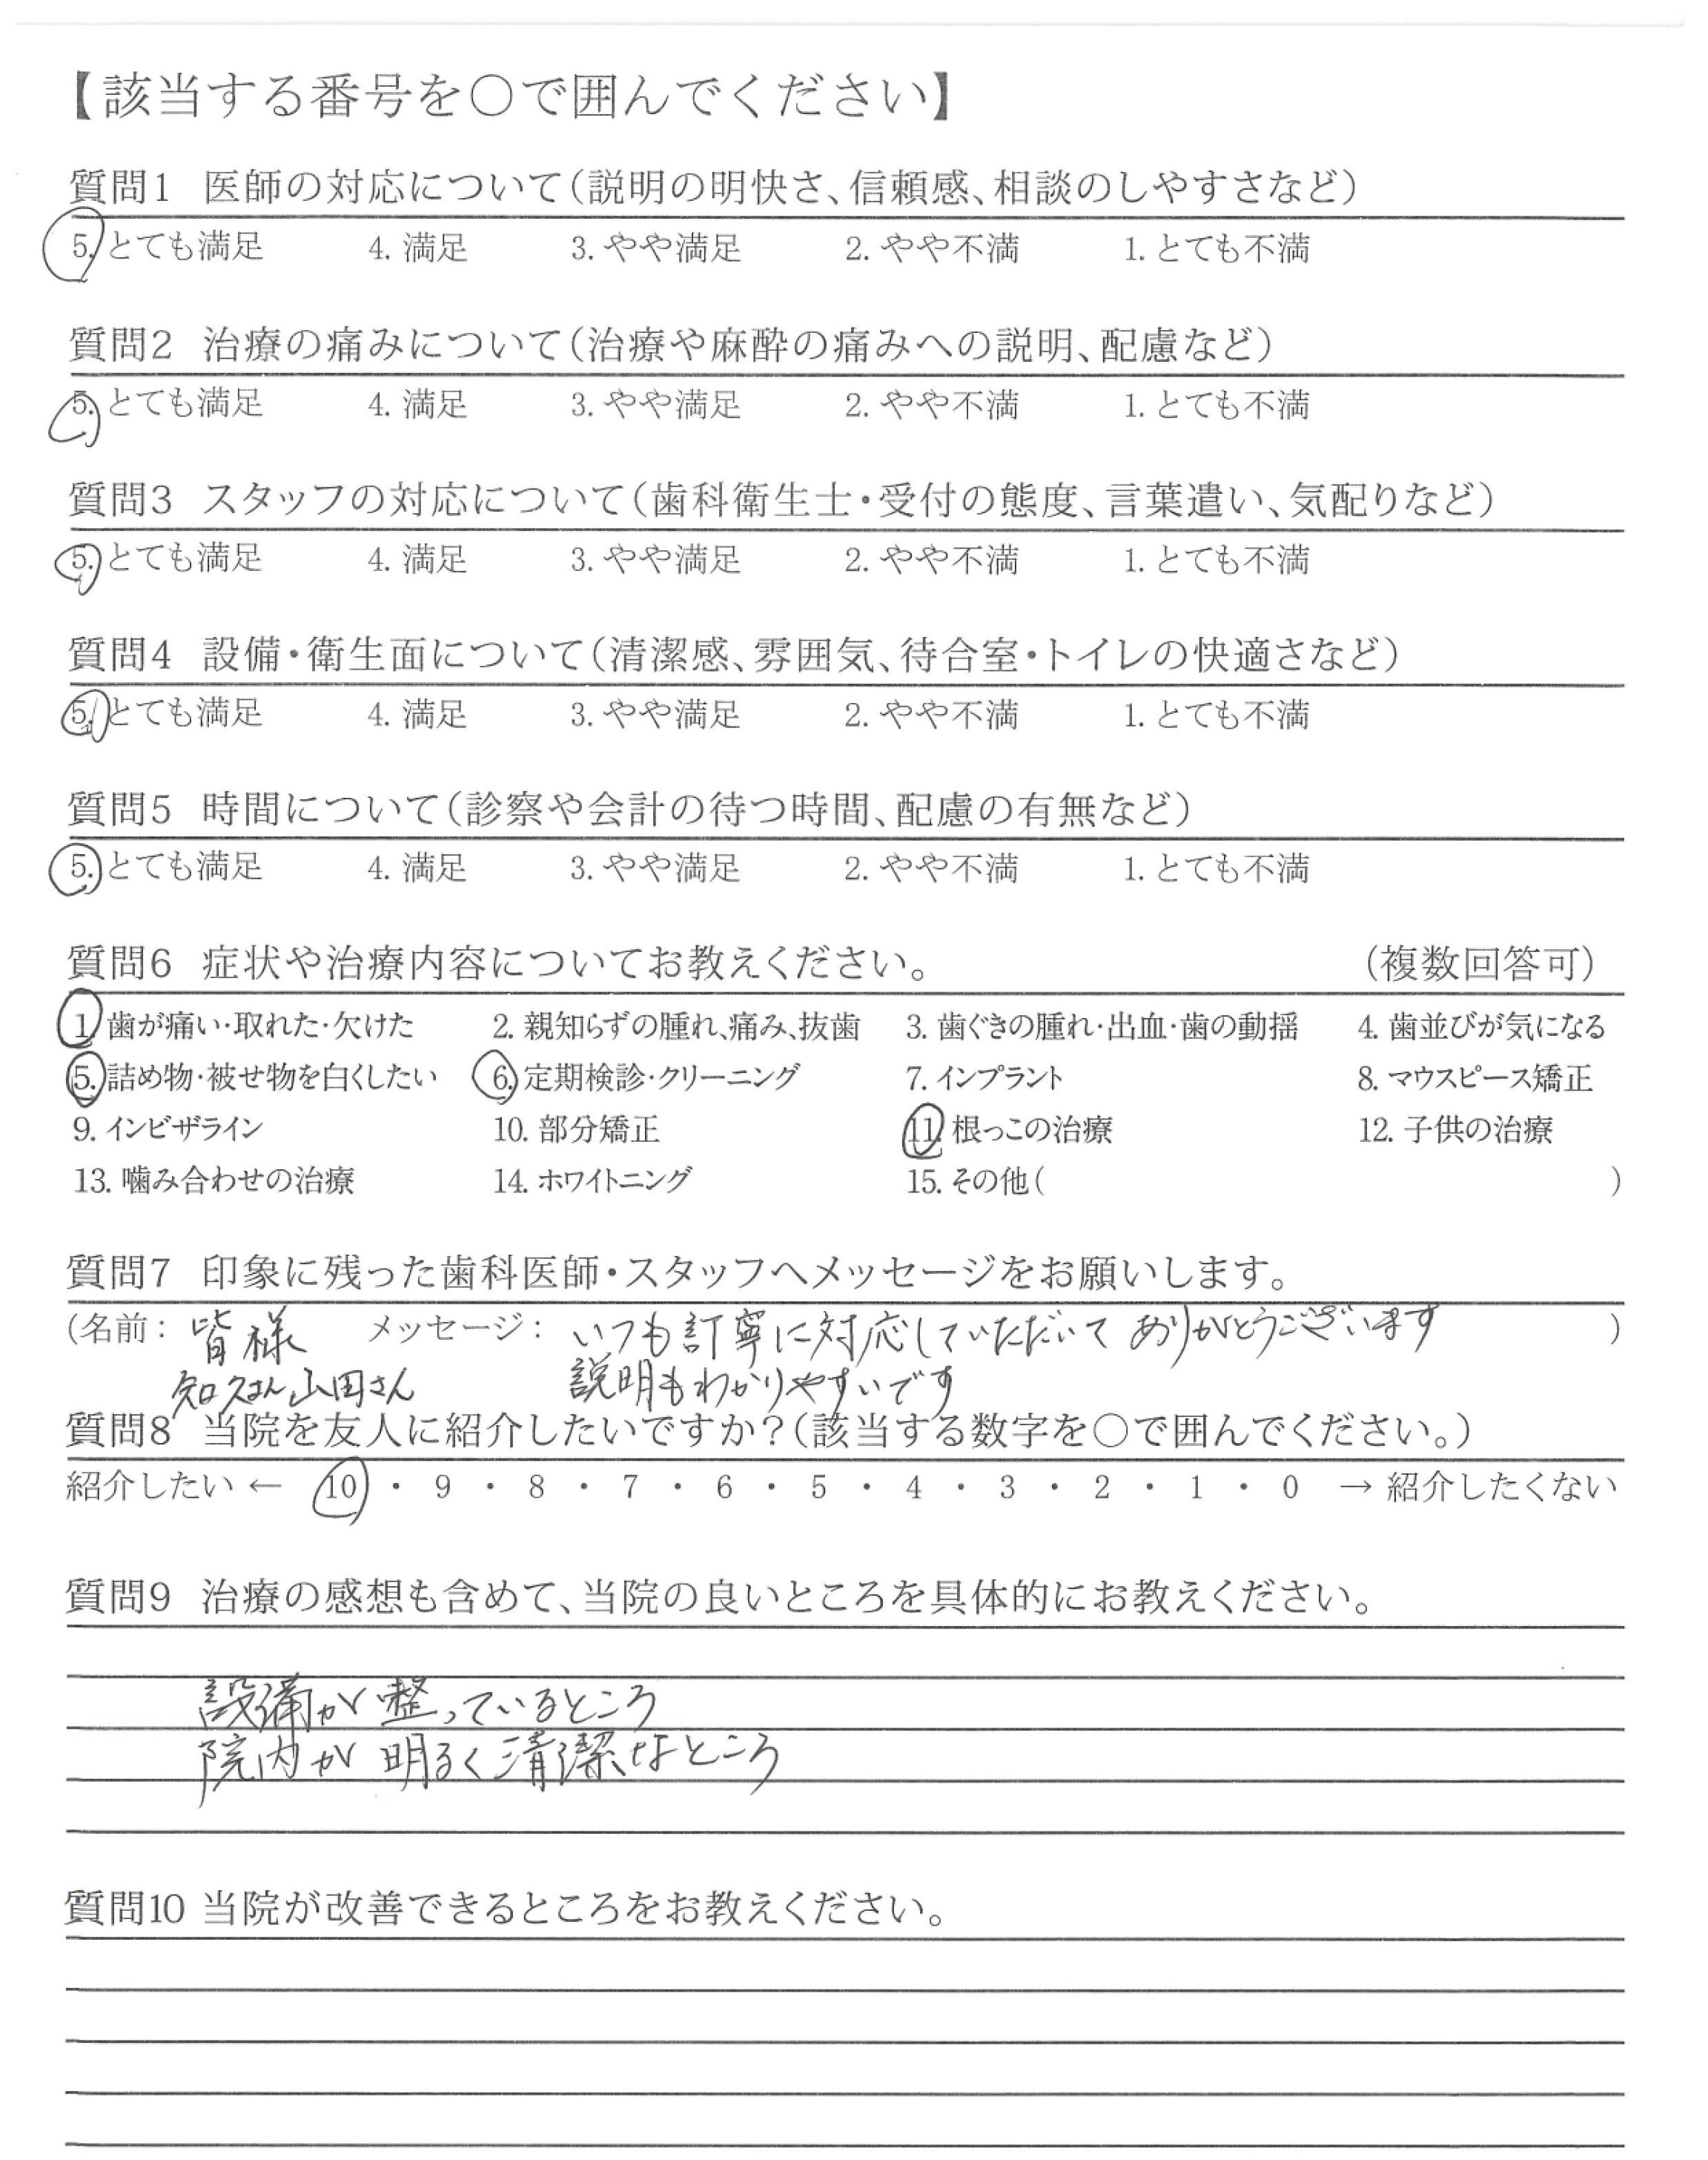 【該当する番号を○で囲んでください】
質問1 医師の対応について(説明の明快さ、信頼感、相談のしやすさなど)
5. とても満足 4. 満足 3. やや満足 2. やや不満 1. とても不満
質問2 治療の痛みについて(治療や麻酔の痛みへの説明、配慮など)
5. とても満足 4. 満足 3. やや満足 2. やや不満 1. とても不満
質問3 スタッフの対応について(歯科衛生士・受付の態度、言葉遣い、気配りなど)
5. とても満足 4. 満足 3. やや満足 2. やや不満 1. とても不満
質問4 設備・衛生面について(清潔感、雰囲気、待合室・トイレの快適さなど)
5. とても満足 4. 満足 3. やや満足 2. やや不満 1. とても不満
質問5 時間について(診察や会計の待つ時間、配慮の有無など)
5. とても満足 4. 満足 3. やや満足 2. やや不満 1. とても不満
質問6 症状や治療内容についてお教えください。 (複数回答可)
1. 歯が痛い・取れた・欠けた 2. 親知らずの腫れ、痛み、抜歯 3. 歯ぐきの腫れ・出血・歯の動揺 4. 歯並びが気になる
5. 詰め物・被せ物を白くしたい 6. 定期検診・クリーニング 7. インプラント 8. マウスピース矯正
9. インビザライン 10. 部分矯正 11. 根っこの治療 12. 子供の治療
13. 噛み合わせの治療 14. ホワイトニング 15. その他( )
質問7 印象に残った歯科医師・スタッフへメッセージをお願いします。
(名前: 皆様 メッセージ: いつも訂寧に対応していただいて ありがとうございます )
知久さん 山田さん 説明もわかりやすいです
質問8 当院を友人に紹介したいですか?(該当する数字を○で囲んでください。)
紹介したい ← 10 ・ 9 ・ 8 ・ 7 ・ 6 ・ 5 ・ 4 ・ 3 ・ 2 ・ 1 ・ 0 → 紹介したくない
質問9 治療の感想も含めて、当院の良いところを具体的にお教えください。
設備が整っているところ
院内が 明るく清潔なところ
質問10 当院が改善できるところをお教えください。